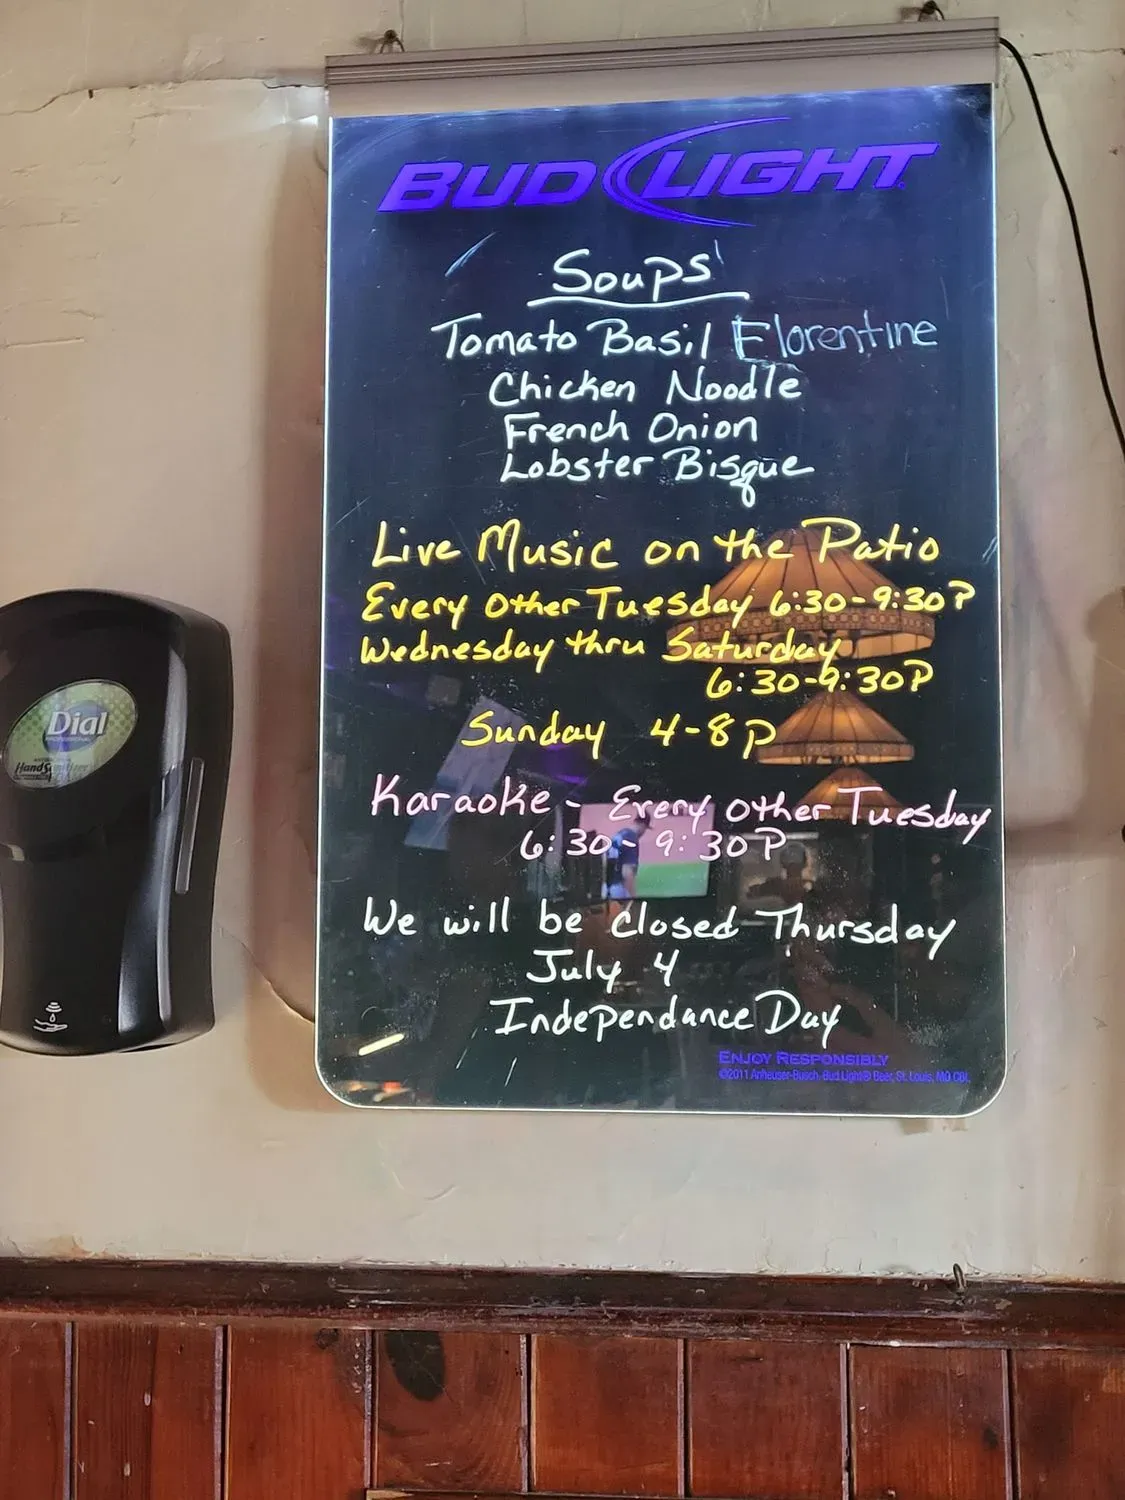 BUD LIGHT
Soups
Tomato Basil Florentine
Chicken Noodle
French Onion
Lobster Bisque
Live Music on the Patio
Every Other Tuesday 6:30-9:30P
Wednesday thru Saturday
6:30-9:30P
Sunday 4-8P
Karaoke - Every Other Tuesday
6:30-9:30P
We will be closed Thursday
July 4
Independance Day
ENJOY RESPONSIBLY
©2011 Anheuser-Busch, Bud Light® Beer, St. Louis, MO
Dial
PROFESSIONAL